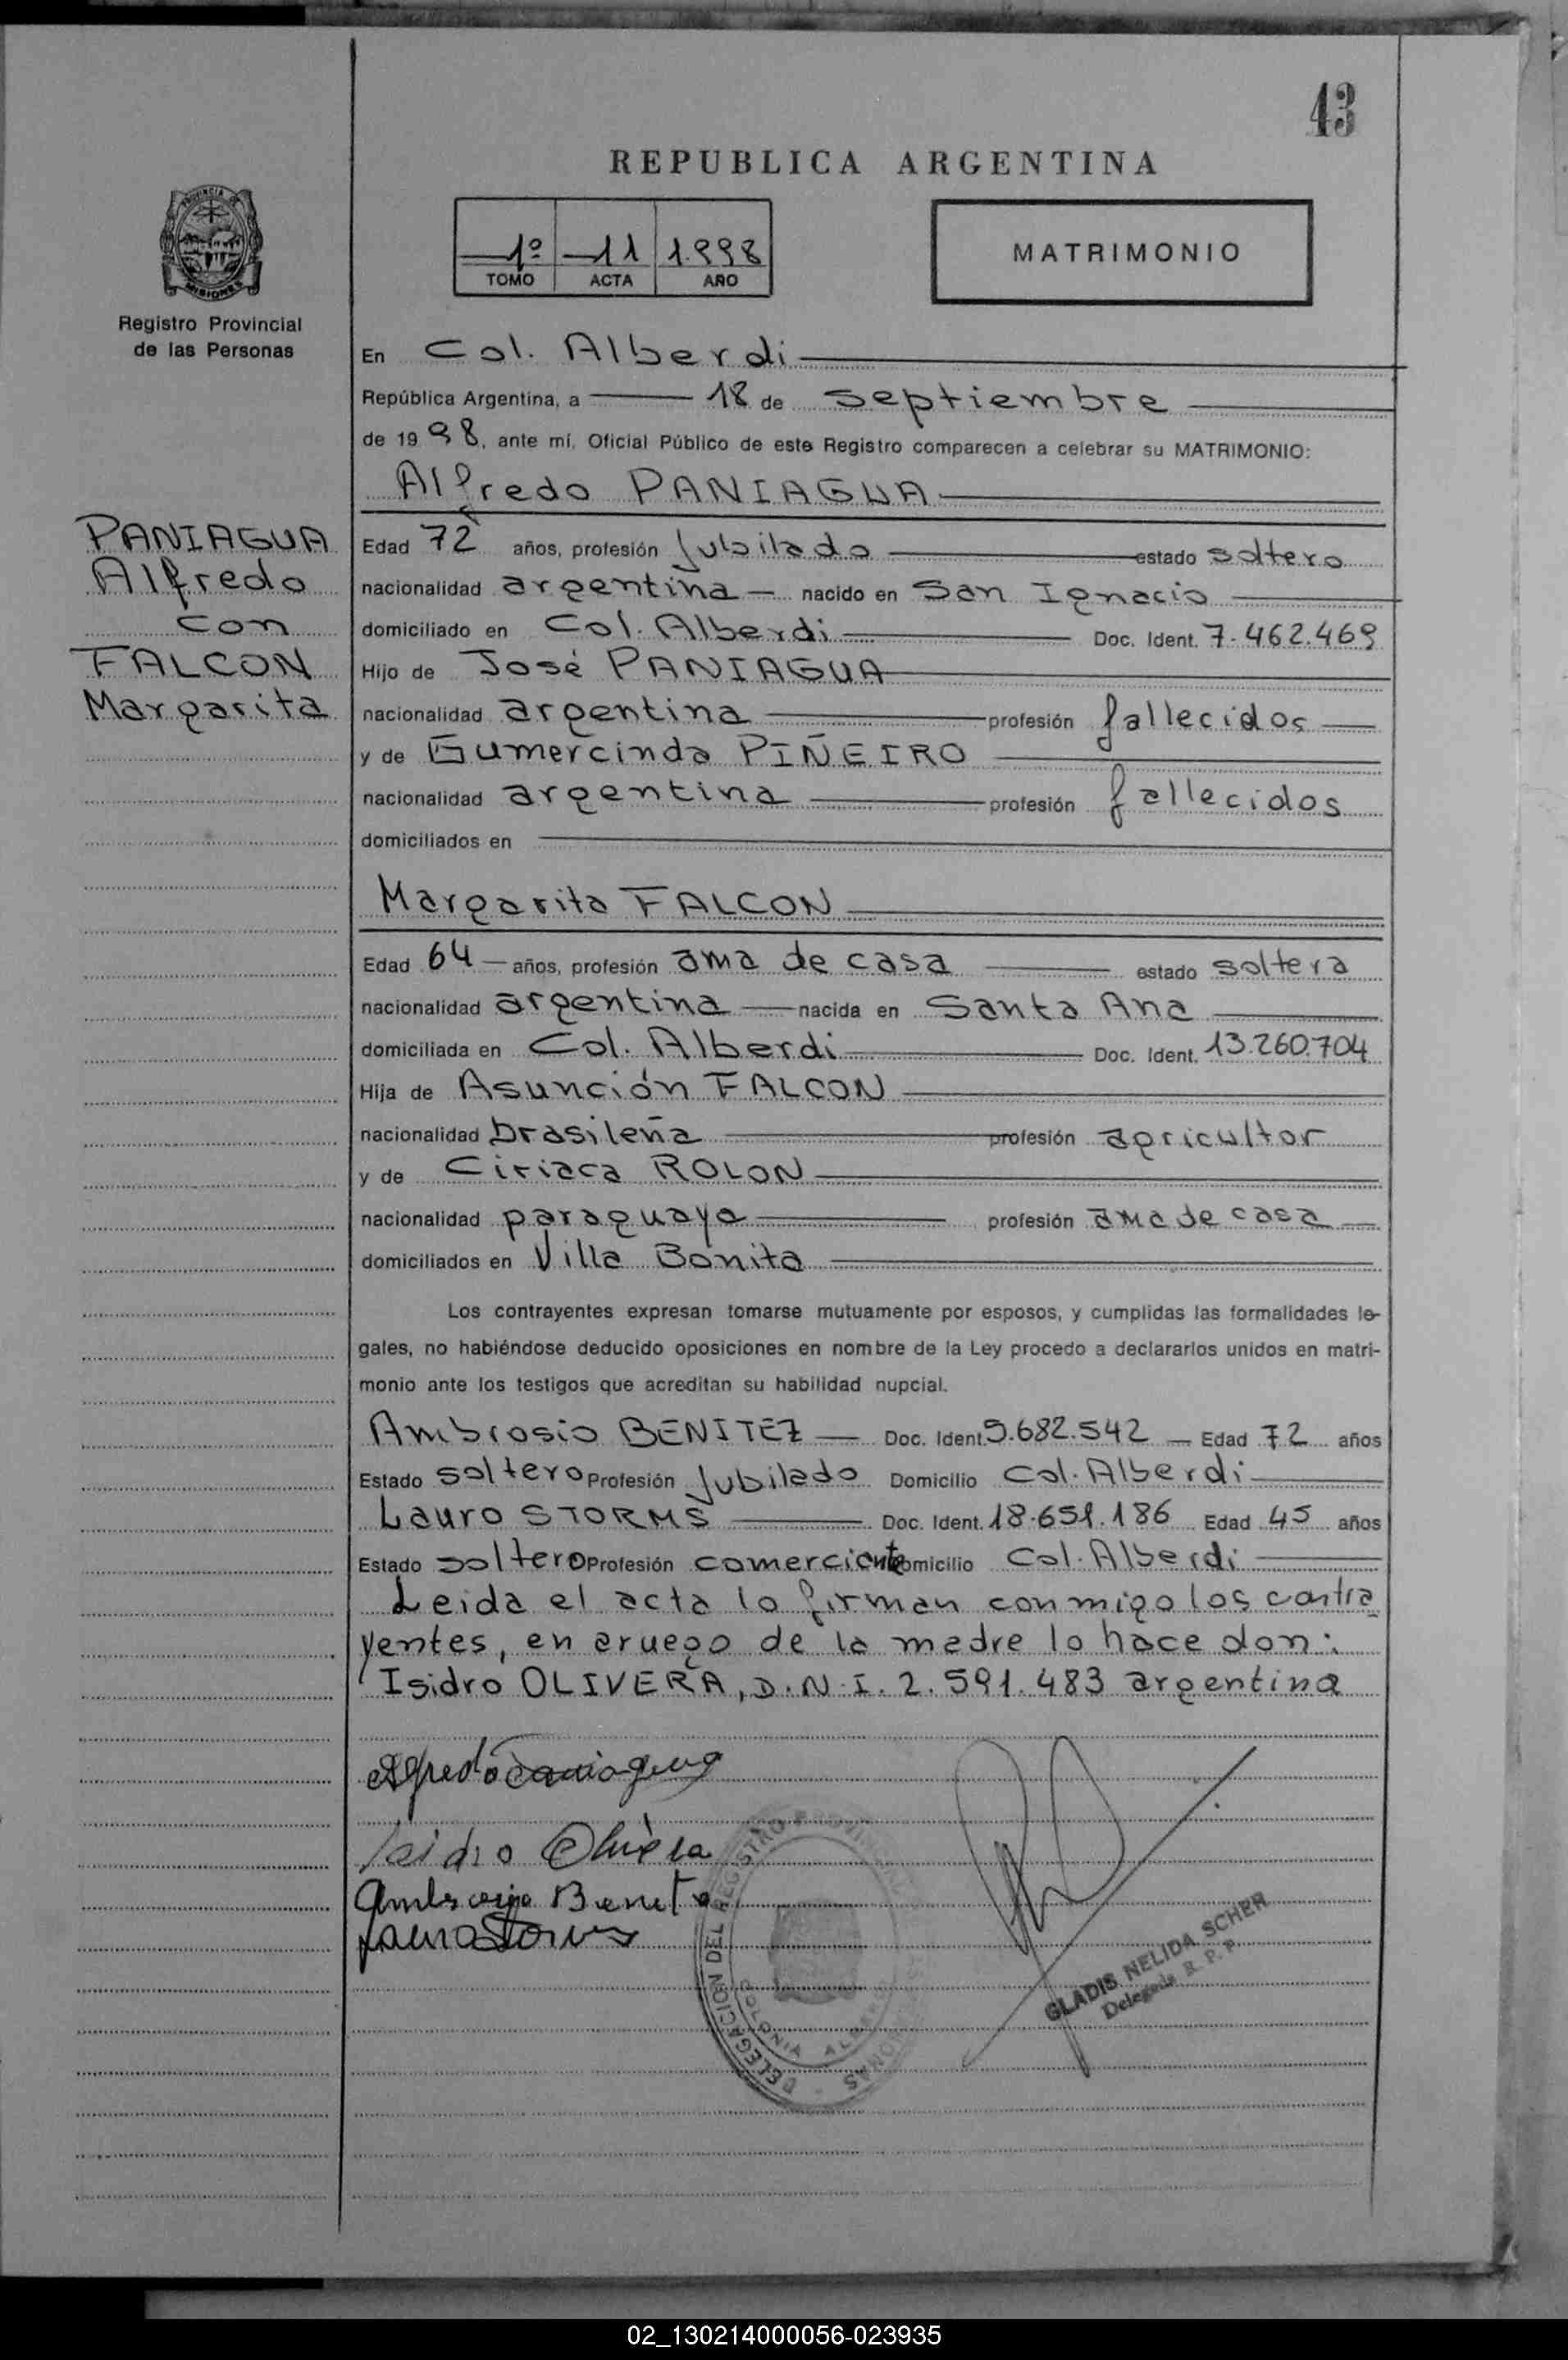 43
REPUBLICA ARGENTINA
PROVINCIA DE
MISIONES
Registro Provincial
de las Personas
1º 11 1.998
TOMO ACTA AÑO
MATRIMONIO
En Col. Alberdi
República Argentina, a 18 de septiembre
de 1998, ante mi, Oficial Público de este Registro comparecen a celebrar su MATRIMONIO:
Alfredo PANIAGUA
PANIAGUA
Alfredo
con
FALCON
Margarita
Edad 72 años, profesión Jubilado estado soltero
nacionalidad argentina nacido en San Ignacio
domiciliado en Col. Alberdi Doc. Ident. 7.462.469
Hijo de José PANIAGUA
nacionalidad argentina profesión fallecidos
y de Gumercinda PIÑEIRO
nacionalidad argentina profesión fallecidos
domiciliados en
Margarita FALCON
Edad 64 años, profesión ama de casa estado soltera
nacionalidad argentina nacida en Santa Ana
domiciliada en Col. Alberdi Doc. Ident. 13.260.704
Hija de Asunción FALCON
nacionalidad brasileña profesión agricultor
y de Ciriaca ROLON
nacionalidad paraguaya profesión ama de casa
domiciliados en Villa Bonita
Los contrayentes expresan tomarse mutuamente por esposos, y cumplidas las formalidades le-
gales, no habiéndose deducido oposiciones en nombre de la Ley procedo a declararlos unidos en matri-
monio ante los testigos que acreditan su habilidad nupcial.
Ambrosio BENITEZ Doc. Ident. 5.682.542 Edad 72 años
Estado soltero Profesión Jubilado Domicilio Col. Alberdi
Lauro STORMS Doc. Ident. 18.651.186 Edad 45 años
Estado soltero Profesión comerciante Domicilio Col. Alberdi
Leida el acta lo firman conmigo los contra
yentes, en aruego de la madre lo hace don:
Isidro OLIVERA, D.N.I. 2.591.483 argentina
Alfredo Paniagua
Isidro Olivera
Lauro Storms
DELEGACION DEL REGISTRO PROVINCIAL
COLONIA
GLADIS NELIDA SCHER
Delegada R. P. P.
02_130214000056-023935